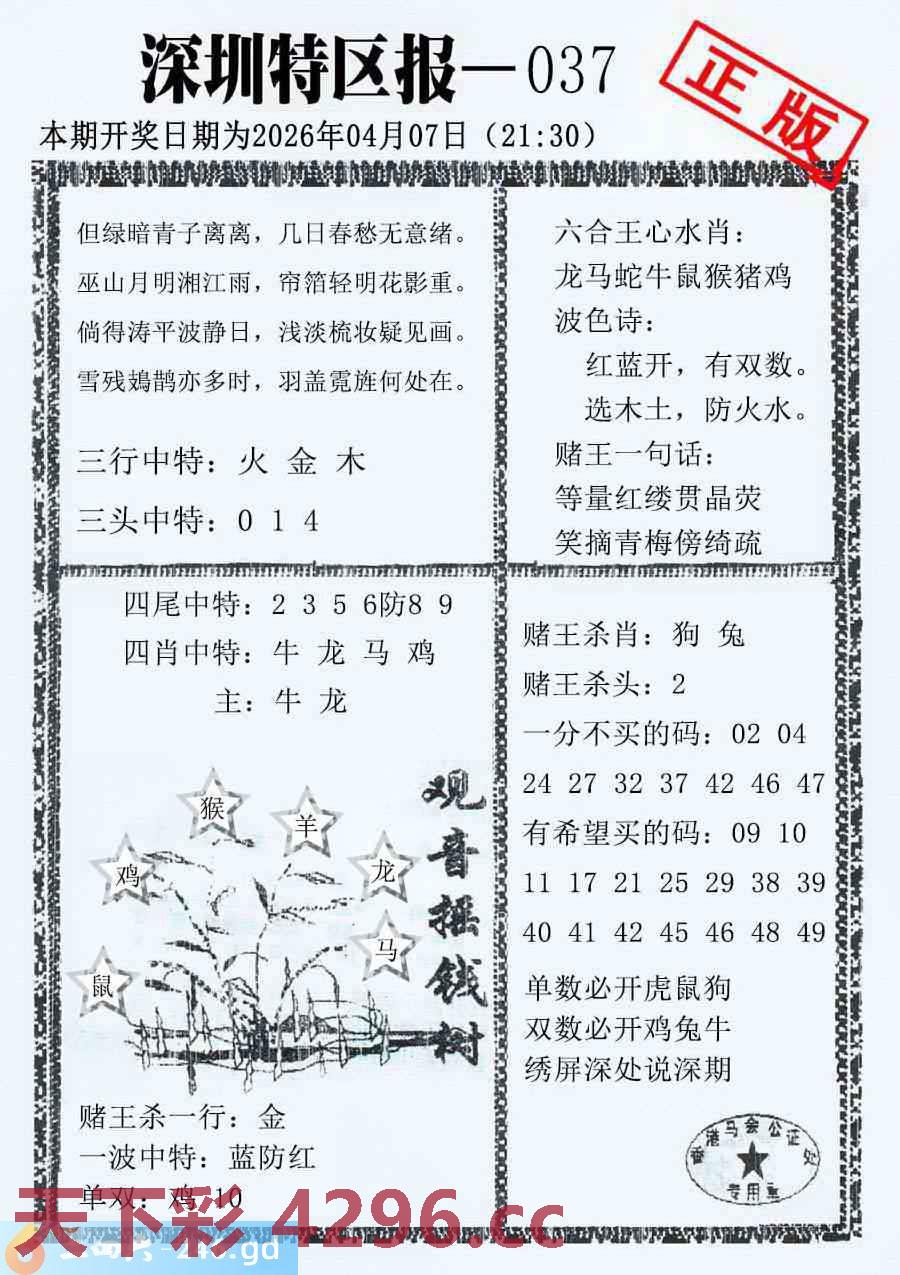 深圳特区报—037
正版
本期开奖日期为2026年04月07日（21:30）
但绿暗青子离离，几日春愁无意绪。
巫山月明湘江雨，帘箔轻明花影重。
倘得涛平波静日，浅淡梳妆疑见画。
雪残鳷鹊亦多时，羽盖霓旌何处在。
三行中特：火 金 木
三头中特：0 1 4
六合王心水肖：
龙马蛇牛鼠猴猪鸡
波色诗：
红蓝开，有双数。
选木土，防火水。
赌王一句话：
等量红缕贯晶荧
笑摘青梅傍绮疏
四尾中特：2 3 5 6防8 9
四肖中特：牛 龙 马 鸡
主：牛 龙
观音摇钱树
猴
羊
鸡
龙
马
鼠
赌王杀一行：金
一波中特：蓝防红
单双：鸡 10
赌王杀肖：狗 兔
赌王杀头：2
一分不买的码：02 04
24 27 32 37 42 46 47
有希望买的码：09 10
11 17 21 25 29 38 39
40 41 42 45 46 48 49
单数必开虎鼠狗
双数必开鸡兔牛
绣屏深处说深期
香港马会公证处
专用章
天下彩 4296.cc